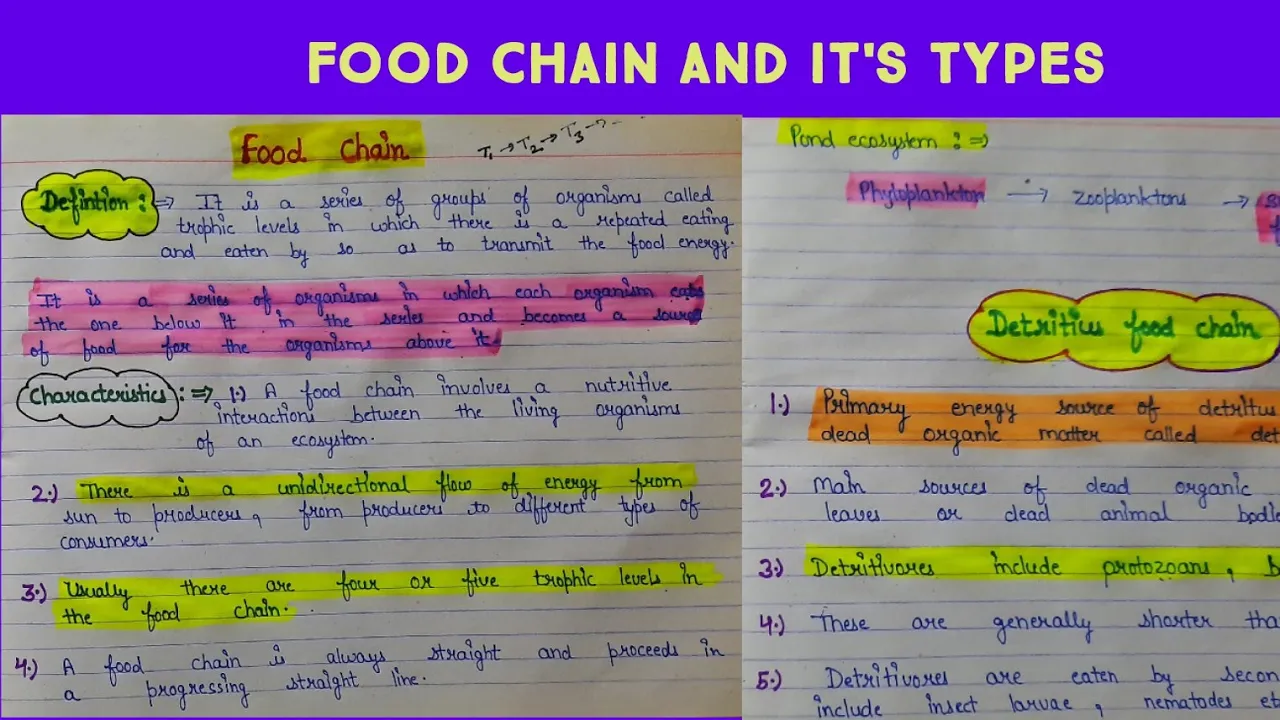 FOOD CHAIN AND IT'S TYPES
Food Chain
T1 → T2 → T3 →
Defintion : ⇒ It is a series of groups of organisms called
trophic levels in which there is a repeated eating
and eaten by so as to transmit the food energy.
It is a series of organisms in which each organism eats
the one below it in the series and becomes a source
of food for the organisms above it.
Characteristics : ⇒ 1.) A food chain involves a nutritive
interactions between the living organisms
of an ecosystem.
2.) There is a unidirectional flow of energy from
sun to producers, from producers to different types of
consumers.
3.) Usually there are four or five trophic levels in
the food chain.
4.) A food chain is always straight and proceeds in
a progressing straight line.
Pond ecosystem : ⇒
Phytoplankton → zooplanktons →
Detritius food chain
1.) Primary energy source of detritus
dead organic matter called det
2.) Main sources of dead organic
leaves or dead animal bodie
3.) Detritivores include protozoans,
4.) These are generally shorter tha
5.) Detritivores are eaten by secon
include insect larvae, nematodes et